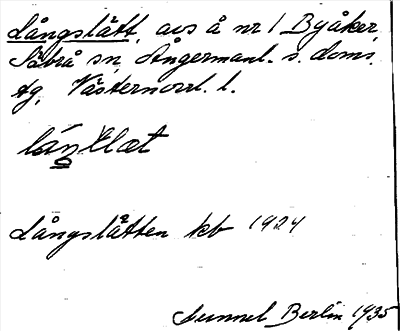 Långslått, avs å nr 1 Byåker,
Säbrå sn, Ångermanl. s. doms.
tg, Västernorrl. l.
Långslåtten kb 1924
Sunnel Berlin 1935